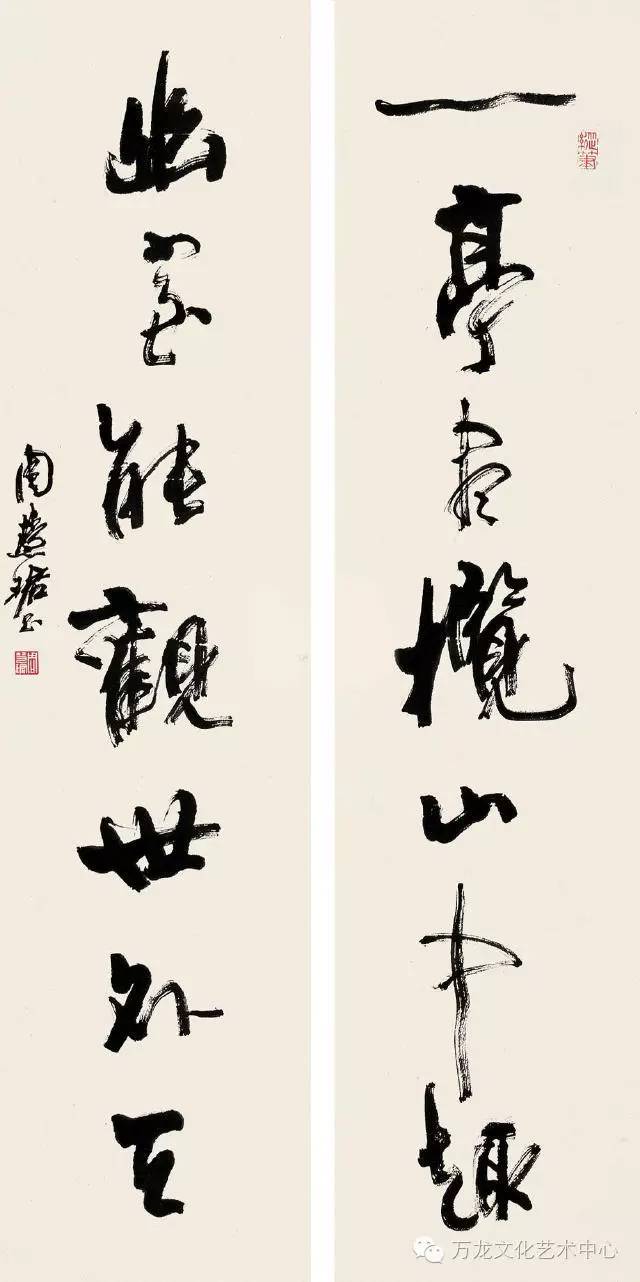 一亭尽攬山中趣
幽室能觀世外天
周慧珺书
万龙文化艺术中心